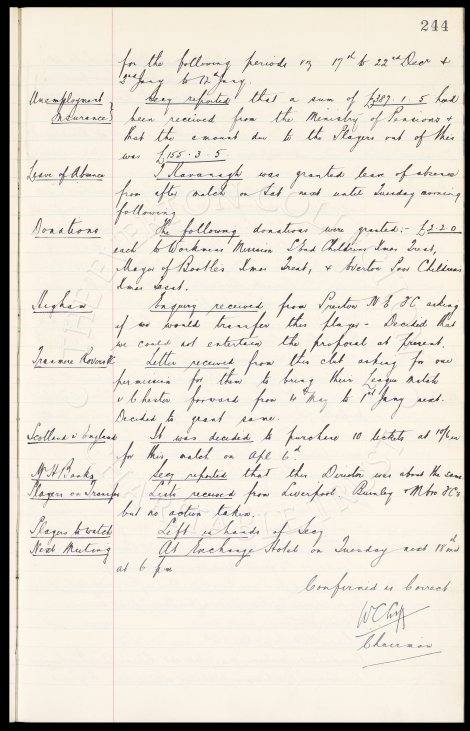 244
for the following periods viz 17th to 22nd Decr &
2nd Jany to 12th Jany.
Unemployment Insurance } Secy reported that a sum of £387.1.5 had
been received from the Ministry of Pensions &
that the amount due to the Players out of this
was £155.3.5
Leave of Absence J Kavanagh was granted leave of absence
from after match on Sat next until Tuesday morning
following
Donations The following donations were granted:- £2.2.0
each to Workmens Mission S End Childrens Xmas Treat,
Mayor of Bootles Xmas Treat, & Everton Poor Childrens
Xmas
Meghan Enquiry received from Preston N E FC asking
if we would transfer this player - Decided that
we could not entertain the proposal at present.
Tranmere Rovers FC Letter received from this club asking for our
permission for them to bring their League match
v Chester forward from 4th May to 1st Jany next.
Decided to grant same.
Scotland v England It was decided to purchase 10 tickets at 10/6 ea
for this match on Apl 6th
Mr H Banks Secy reported that this Director was about the same
Players on Transfer Lists received from Liverpool Burnley & Mbro FC's
but no action taken.
Players to watch Left in hands of Secy
Next Meeting At Exchange Hotel on Tuesday next 18th inst
at 6 pm
Confirmed as Correct
W C Cuff
Chairman